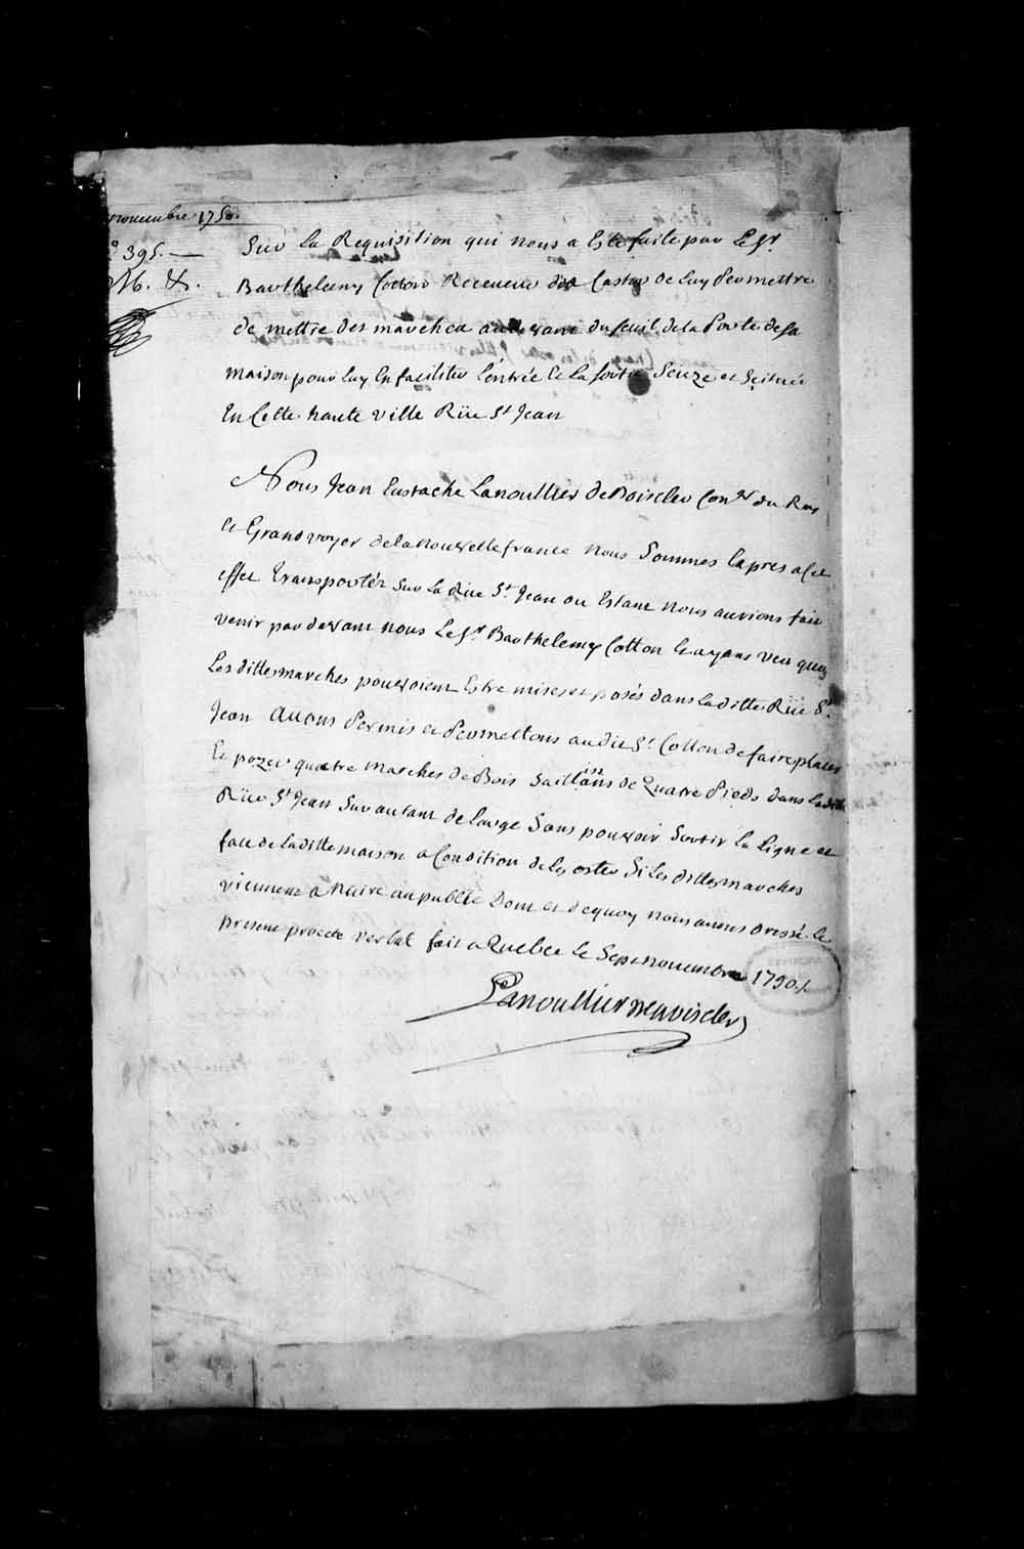 nouembre 1750.
N° 395.
Sur La Requisition qui nous a Este faite par Le Sr
Barthelemy Cotton Receueur du Castor de Luy Permettre
de mettre des marches audevant du seuil de la Porte de sa
maison pour Luy En faciliter L'entrée Et La sortie Scize et Scituée
En Cette haute ville Rüe St Jean
Nous Jean Eustache Lanoullier de Boiscler Conser du Roy
Et Grand voyer de la Nouvelle france Nous Sommes Expres a Cet
effet Transportéz Sur La Rüe St Jean ou Estant Nous aurions fait
venir par devant nous Le Sr Barthelemy Cotton Et ayans veu que
Les dittes marches pouvoient Estre mises et posés dans laditte Rüe St
Jean Auons Permis et Permettons audit Sr Cotton de faire placer
Et pozer quatre marches de Bois Saillans de Quatre Pieds dans laditte
Rüe St Jean Sur autant de large Sans pouvoir Sortir La Ligne et
face de laditte maison a Condition de Les oster Si Les dittes marches
viennent a Nuire au public Dont et de quoy nous auons dressé le
present procest verbal fait a Quebec le Sept nouembre 1750.
Lanoullier de boiscler